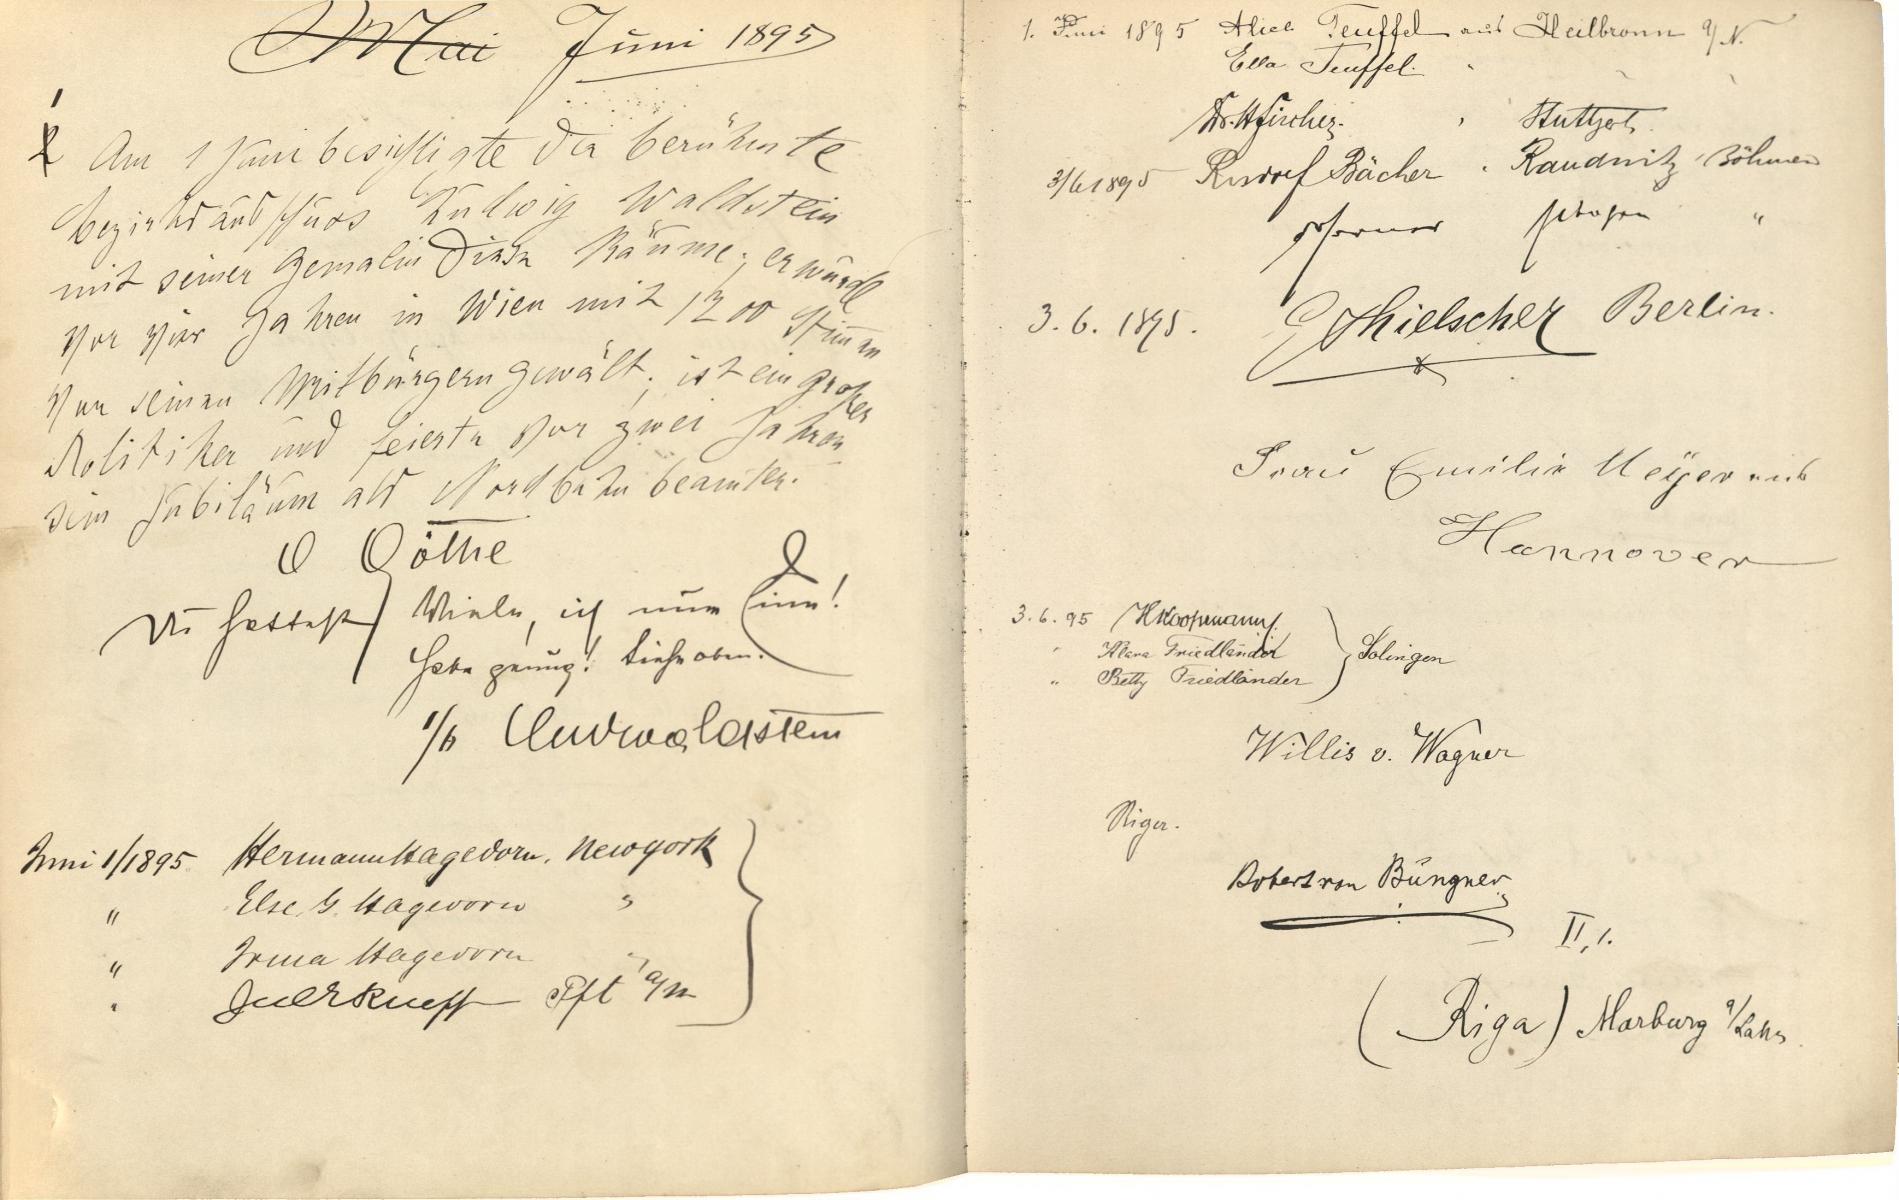 Mai Juni 1895
1
Am 1 Juni besichtigte der berühmte
bezirksausschuss Ludwig Waldstein
mit seiner Gemalin diese Räume; er wurde
vor vier Jahren in Wien mit 1200 Stimmen
von seinen Mitbürgern gewält; ist ein großer
Politiker und feierte vor zwei Jahren
sein Jubiläum als Nordbahnbeamter.
O Göthe
Du hattest Viele, ich nur Eine!
Habe genug! Siehe oben.
1/6 Ludwaldstein
Juni 1/1895 Hermann Hagedorn, Newyork
" Else G. Hagedorn "
" Irma Hagedorn "
" Pft a/m
1. Juni 1895 Alice Teuffel aus Heilbronn a/N.
Ella Teuffel "
Dr. H Fischer. " Stuttgart.
3/6 1895 Rudolf Bächer " Raudnitz, Böhmen
"
3. 6. 1895. E Thielscher Berlin.
Frau Emilie Meÿer aus
Hannover
3. 6. 95 H Koopmann
" Klara Friedländer Solingen
" Betty Friedländer
Willis v. Wagner
Riga.
Robert von Büngner
II, 1.
(Riga) Marburg a/Lahn